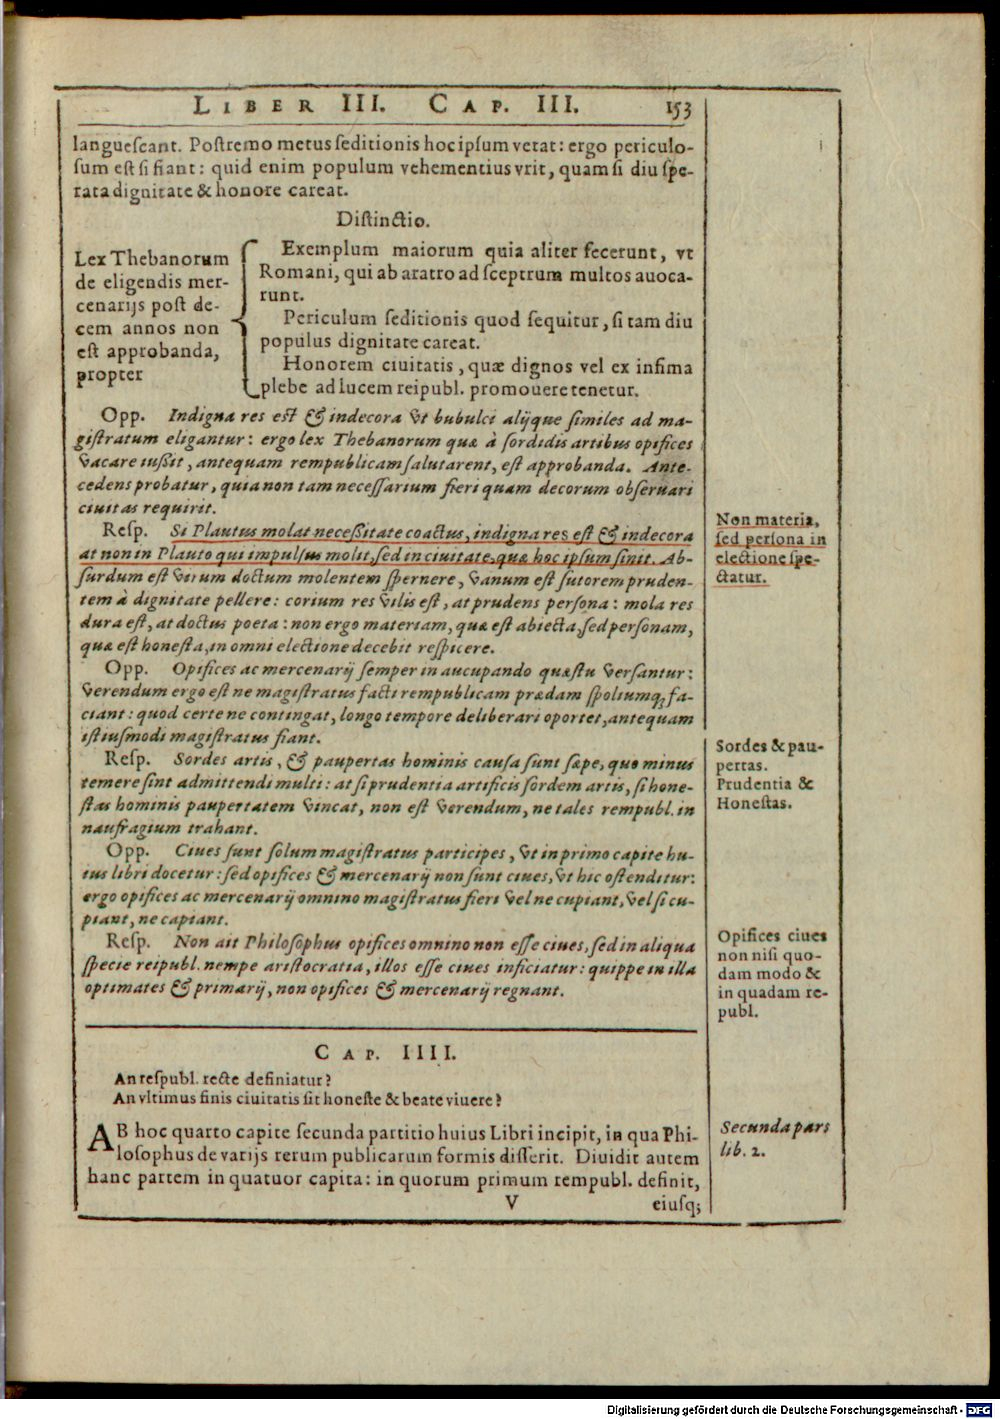 LIBER III. CAP. III. 153
langueſcant. Poſtremo metus ſeditionis hoc ipſum vetat: ergo periculo-
ſum eſt ſi fiant: quid enim populum vehementius vrit, quam ſi diu ſpe-
rata dignitate & honore careat.
Diſtinctio.
Lex Thebanorum
de eligendis mer-
cenarijs poſt de-
cem annos non
eſt approbanda,
propter
Exemplum maiorum quia aliter fecerunt, vt
Romani, qui ab aratro ad ſceptrum multos auoca-
runt.
Periculum ſeditionis quod ſequitur, ſi tam diu
populus dignitate careat.
Honorem ciuitatis, quæ dignos vel ex infima
plebe ad lucem reipubl. promouere tenetur.
Opp. Indigna res eſt & indecora vt bubulci alijque ſimiles ad ma-
giſtratum eligantur: ergo lex Thebanorum quæ à ſordidis artibus opifices
vacare iußit, antequam rempublicam ſalutarent, eſt approbanda. Ante-
cedens probatur, quia non tam neceſſarium fieri quam decorum obſeruari
ciuitas requirit.
Reſp. Si Plautus molat neceßitate coactus, indigna res eſt & indecora
at non in Plauto qui impulſus molit, ſed in ciuitate, quæ hoc ipſum ſinit. Ab-
ſurdum eſt virum doctum molentem ſpernere, vanum eſt ſutorem pruden-
tem à dignitate pellere: corium res vilis eſt, at prudens perſona: mola res
dura eſt, at doctus poeta: non ergo materiam, quæ eſt abiecta, ſed perſonam,
quæ eſt honeſta, in omni electione decebit reſpicere.
Non materia,
ſed perſona in
electione ſpe-
ctatur.
Opp. Opifices ac mercenarij ſemper in aucupando quæſtu verſantur:
verendum ergo eſt ne magiſtratus facti rempublicam prædam ſpoliumq; fa-
ciant: quod certe ne contingat, longo tempore deliberari oportet, antequam
iſtiuſmodi magiſtratus fiant.
Reſp. Sordes artis, & paupertas hominis cauſa ſunt ſæpe, quo minus
temere ſint admittendi multi: at ſi prudentia artificis ſordem artis, ſi hone-
ſtas hominis paupertatem vincat, non eſt verendum, ne tales rempubl. in
naufragium trahant.
Sordes & pau-
pertas.
Prudentia &
Honeſtas.
Opp. Ciues ſunt ſolum magiſtratus participes, vt in primo capite hu-
ius libri docetur: ſed opifices & mercenarij non ſunt ciues, vt hic oſtenditur:
ergo opifices ac mercenarij omnino magiſtratus fieri vel ne cupiant, vel ſi cu-
piant, ne capiant.
Reſp. Non ait Philoſophus opifices omnino non eſſe ciues, ſed in aliqua
ſpecie reipubl. nempe ariſtocratia, illos eſſe ciues inficiatur: quippe in illa
optimates & primarij, non opifices & mercenarij regnant.
Opifices ciues
non niſi quo-
dam modo &
in quadam re-
publ.
CAP. IIII.
An reſpubl. recte definiatur?
An vltimus finis ciuitatis ſit honeſte & beate viuere?
AB hoc quarto capite ſecunda partitio huius Libri incipit, in qua Phi-
loſophus de varijs rerum publicarum formis diſſerit. Diuidit autem
hanc partem in quatuor capita: in quorum primum rempubl. definit,
Secunda pars
lib. 2.
V eiuſq;
Digitalisierung gefördert durch die Deutsche Forschungsgemeinschaft - DFG